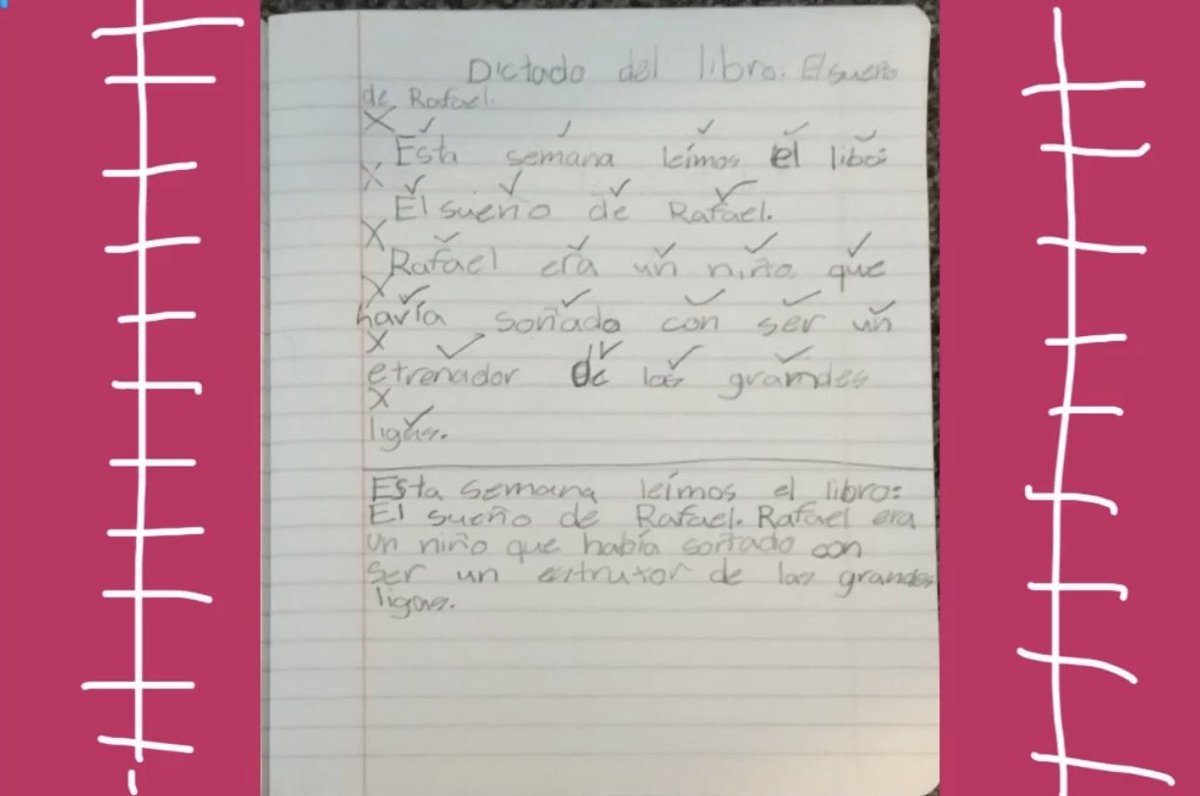 Dictado del libro: El sueño
de Rafael.
Esta semana leímos el libo:
El sueño de Rafael.
Rafael era un niño que
havía soñado con ser un
etrenador de las grandes
ligas.
Esta semana leímos el libro:
El sueño de Rafael. Rafael era
un niño que había soñado con
ser un de las grandes
ligas.